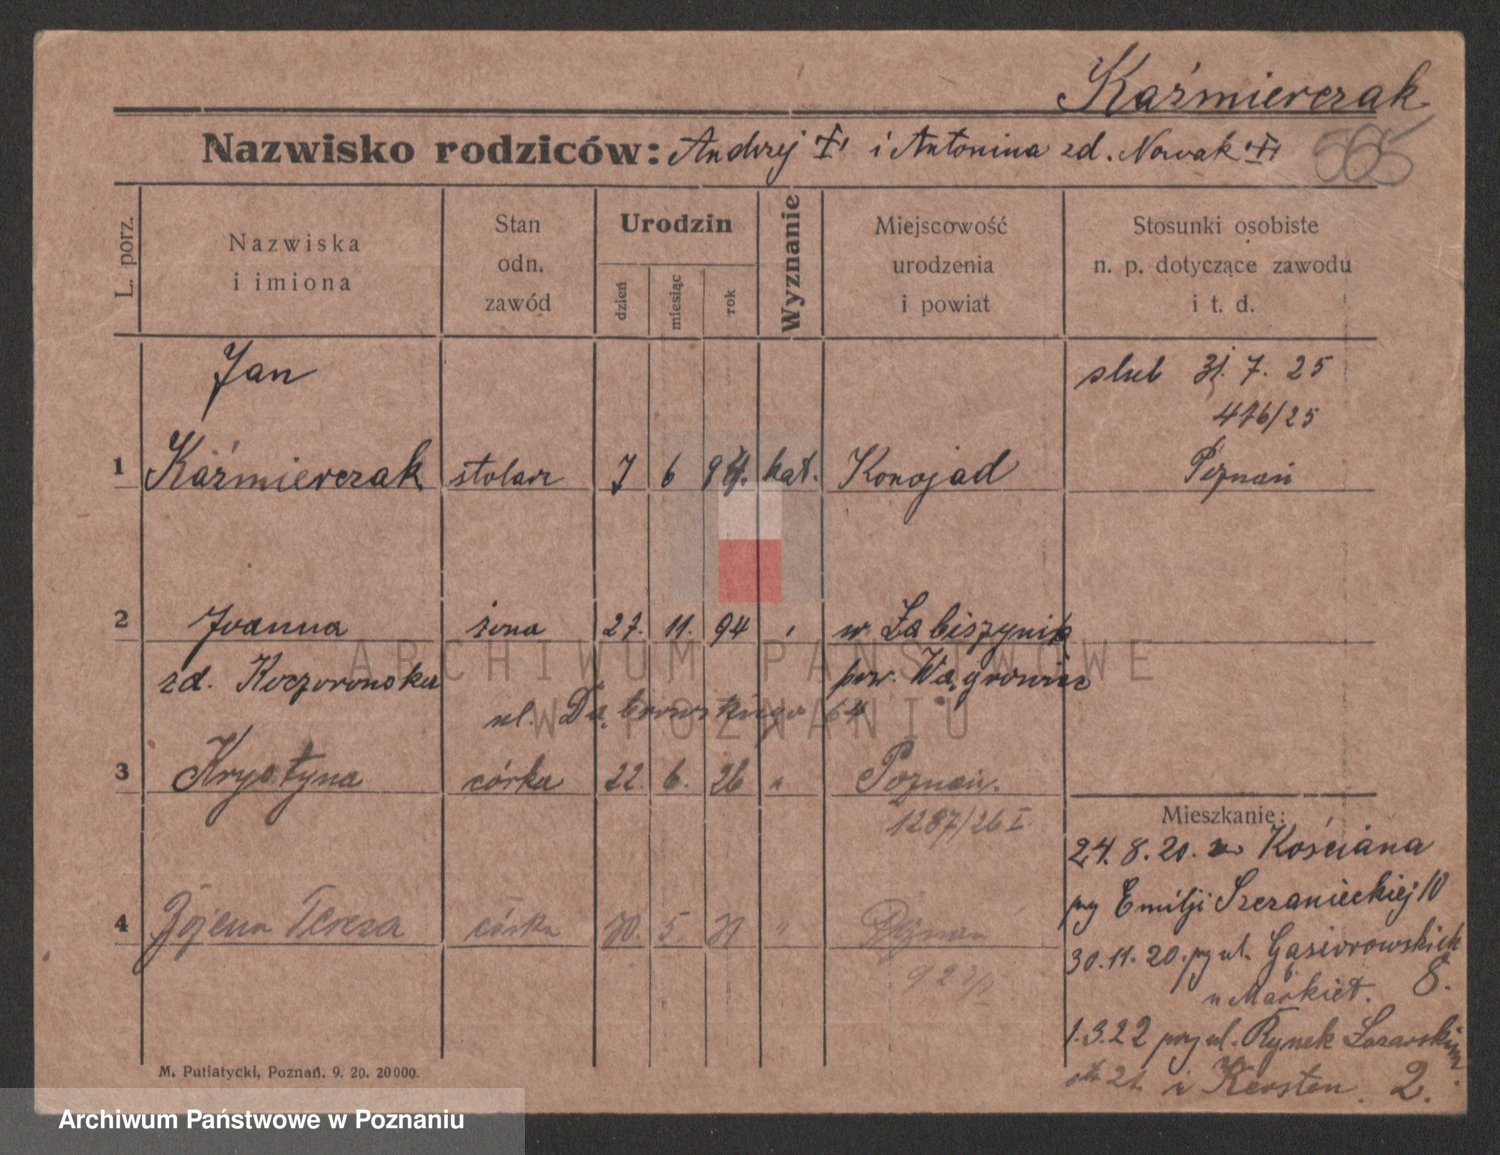 Kaźmierczak
Nazwisko rodziców: Andrzej i Antonina zd. Nowak
565
L. porz.
Nazwiska
i imiona
Stan
odn.
zawód
Urodzin
dzień
miesiąc
rok
Wyznanie
Miejscowość
urodzenia
i powiat
Stosunki osobiste
n. p. dotyczące zawodu
i t. d.
Jan
ślub 31. 7. 25
476/25
1 Kaźmierczak stolarz 7 6 kat. Konojad Poznań
2 Joanna żona 27. 11. 94 w. Łabiszynie
zd. Koczorowska pow. Wągrowiec
ul. Dąbrowskiego 64
3 Krystyna córka 22. 6. 26 " Poznań.
1287/26 I
Mieszkanie:
24. 8. 20. z Kościana
4 Teresa córka 5. " Poznań
przy Emilji Szczanieckiej 10
30. 11. 20. przy ul. Gąsiorowskich
8.
u Markiet.
1. 3. 22 przy ul. Rynek Łazarski
i Kersten. 2.
M. Putiatycki, Poznań. 9. 20. 20000.
ARCHIWUM PAŃSTWOWE
W POZNANIU
Archiwum Państwowe w Poznaniu